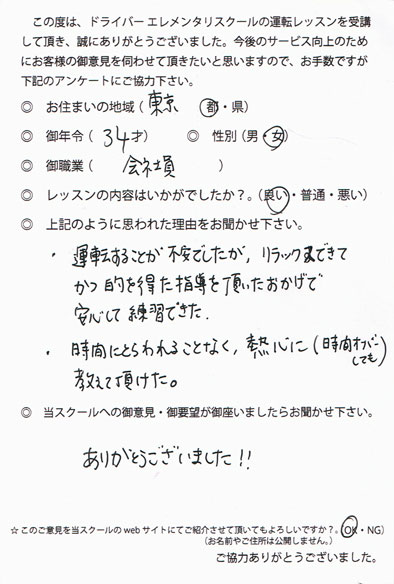 この度は、ドライバー エレメンタリスクールの運転レッスンを受講
して頂き、誠にありがとうございました。今後のサービス向上のため
にお客様の御意見を伺わせて頂きたいと思いますので、お手数ですが
下記のアンケートにご協力下さい。
◎ お住まいの地域（東京 都・県）
◎ 御年令（34才） ◎ 性別（男・女）
◎ 御職業（会社員）
◎ レッスンの内容はいかがでしたか？。（良い・普通・悪い）
◎ 上記のように思われた理由をお聞かせ下さい。
・運転することが不安でしたが、リラックスできて
かつ的を得た指導を頂いたおかげで
安心して練習できた．
・時間にとらわれることなく、熱心に（時間オーバー
しても）
教えて頂けた。
◎ 当スクールへの御意見・御要望が御座いましたらお聞かせ下さい。
ありがとうございました!!
☆このご意見を当スクールのwebサイトにてご紹介させて頂いてもよろしいですか？。（OK・NG）
（お名前やご住所は公開しません。）
ご協力ありがとうございました。